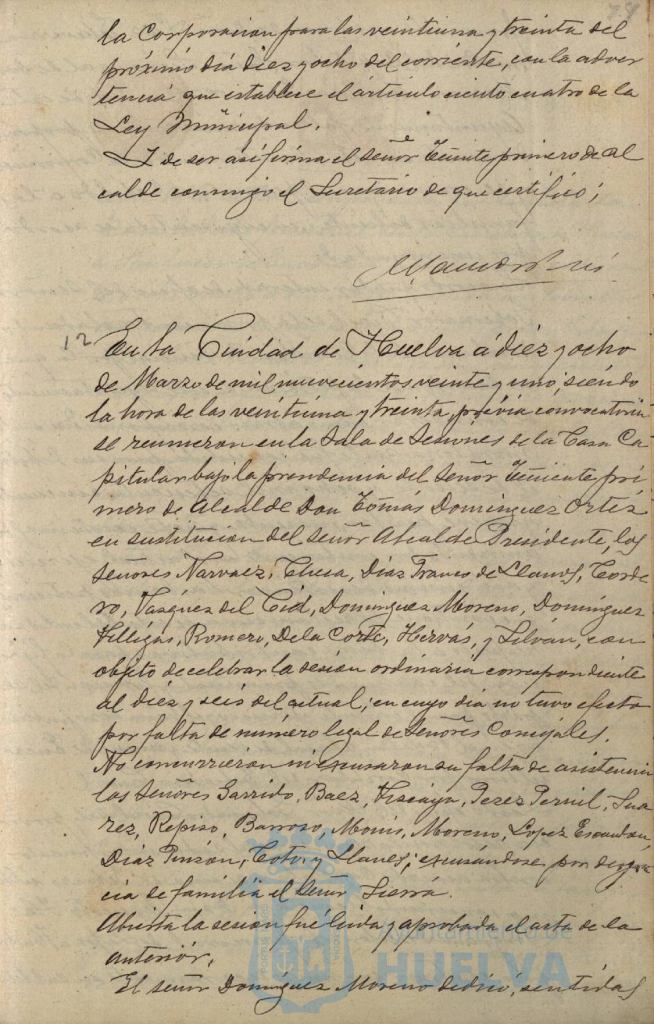 la Corporacion para las veintiuna y treinta del
próximo día diez y ocho del corriente, con la adver
tencia que establece el artículo ciento cuatro de la
Ley Municipal.
Y de ser así firma el señor Teniente primero de Al
calde conmigo el Secretario de que certifico;
12 En la Ciudad de Huelva á diez y ocho
de Marzo de mil nuevecientos veinte y uno, siendo
la hora de las veintiuna y treinta, prévia convocatoria
se reunieron en la Sala de Sesiónes de la Casa Ca
pitular bajo la presidencia del Señor Teniente pri
mero de Alcalde Don Tomás Dominguez Ortiz
en sustitucion del señor Alcalde Presidente, los
señores Narvaez, Checa, Diaz Franco de Llanos, Corde
ro, Vazquez del Cid, Dominguez Moreno, Domínguez
Villegas, Romero, De la Corte, Hervás, y Silván, con
objeto de celebrar la sesion ordinaria correspondiente
al diez y seis del actual, en cuyo día no tuvo efecto
por falta de número legal de Señores Concejales.
No concurrieron ni escusaron su falta de asistencia
los Señores Garrido, Baez, Viscaya, Perez Pernil, Sua
rez, Repiso, Barroso, Monis, Moreno, Lopez Escandon,
Diaz Pinzón, Coto, y Llanes; escusándose por desgra
cia de familia el señor Sierra.
Abierta la sesion fué leida y aprobada el acta de la
anterior.
El señor Domínguez Moreno dedicó, sentidas
Ayuntamiento de
HUELVA